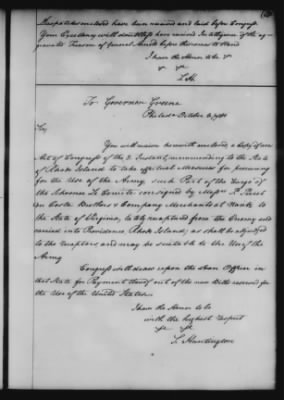 Despatches enclosed have been received and laid before Congress
Your Excellency will doubtless have received Intelligence of the ag-
gravated Treason of General Arnold before this comes to Hand
I have the Honor to be &
S. H.
To Governor Greene
Philada October 1780
Sir,
You will receive herewith enclosed, a Copy of an
Act of Congress of the 2 Instant, recommending to the State
of Rhode Island to take effectual Measures for procuring
for the Use of the Army such Part of the Cargo of
the Schooner Le Comte consigned by Messrs
Brothers & Company Merchants at to
the State of Virginia, lately recaptured from the Enemy and
carried into Providence, Rhode Island; as shall be adjudged
to the recaptors and may be suitable to the Use of the
Army
Congress will draw upon the Loan Officer in
that State for Payment thereof out of the new Bills reserved for
the Use of the United States.
I have the Honor to be
with the highest respect
S. Huntington